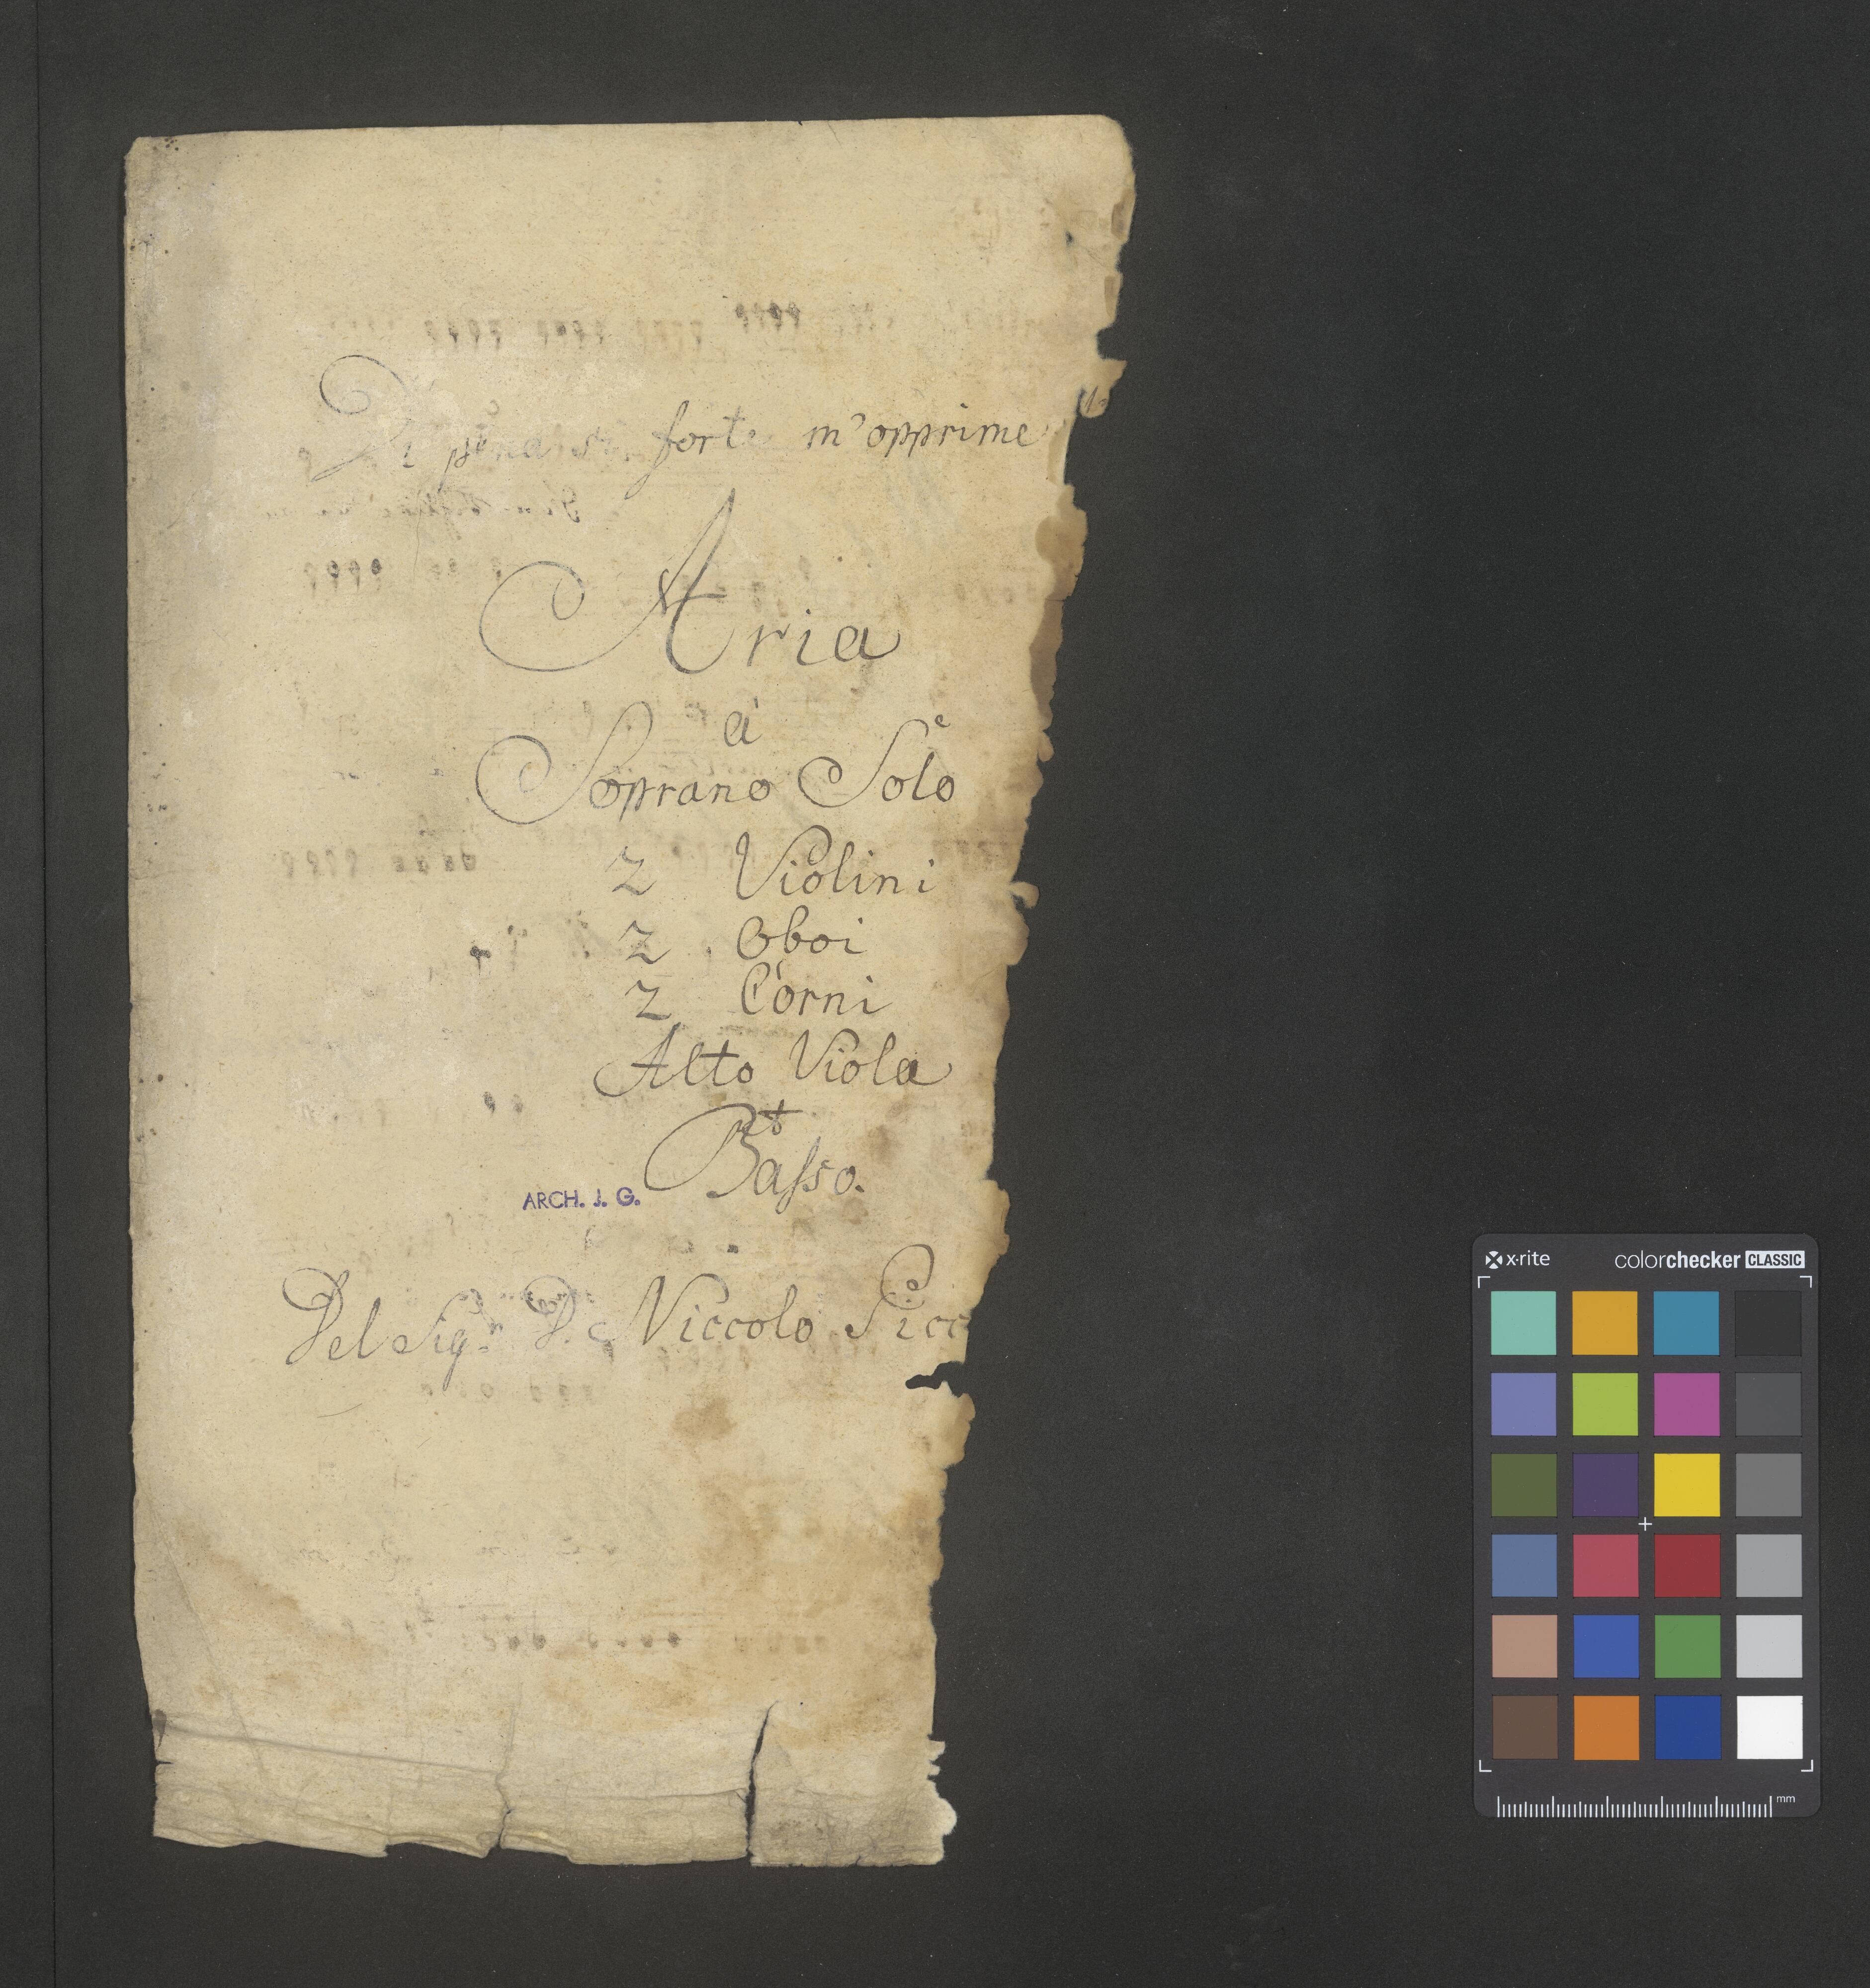 Di pena si forte m'opprime
Aria
à
Soprano Solo
2 Violini
2 Oboi
2 Corni
Alto Viola
Basso.
ARCH. J. G.
Del Sigr. D. Niccolo Picc
x-rite colorchecker CLASSIC
mm